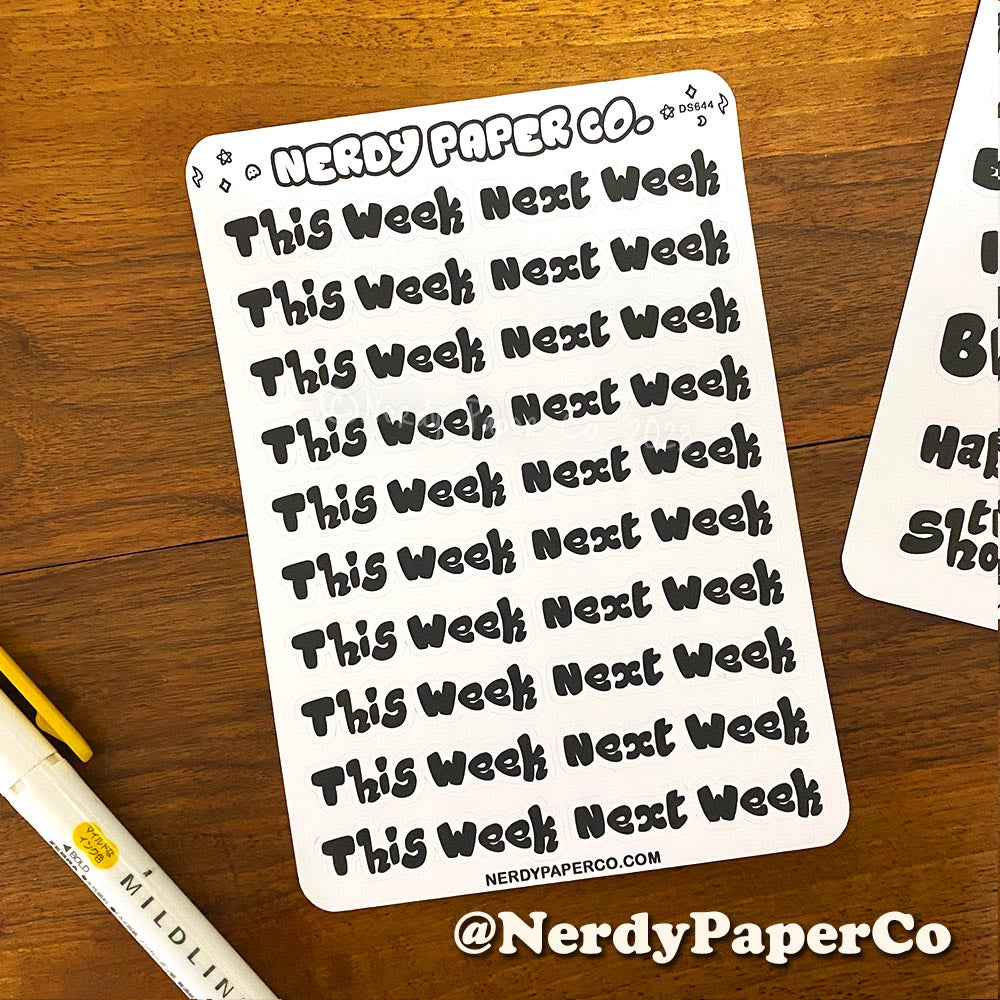 NERDY PAPER CO.
DS644
This Week Next Week
This Week Next Week
This Week Next Week
This Week Next Week
©Nerdy Paper Co. 2023
This Week Next Week
This Week Next Week
This Week Next Week
This Week Next Week
This Week Next Week
This Week Next Week
NERDYPAPERCO.COM
@NerdyPaperCo
マイルドな
インク色
◀BOLD
MILDLIN
Hap
Sho